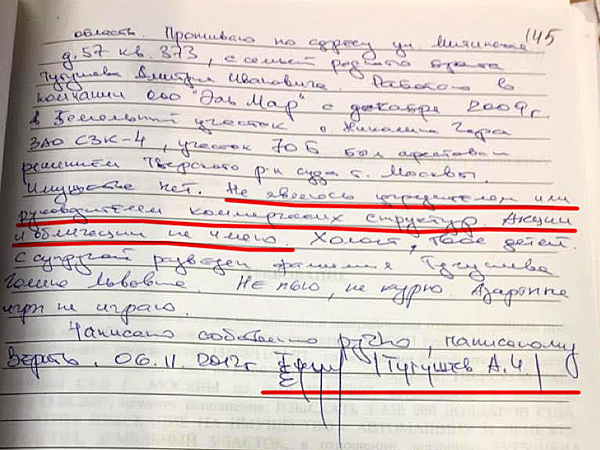 145
область. Проживаю по адресу ул. Митинская
д. 57 кв. 373, с семьей родного брата
Тугушева Дмитрия Ивановича. Работаю в
компании ООО "Эль Мар" с декабря 2009г.
Земельный участок о Николина Гора
ЗАО СЗК-4, участок 70Б был арестован
решением Тверского р-н суда г. Москвы.
Имущества нет. Не являюсь учредителем или
руководителем коммерческих структур. Акции
и облигации не имею. Холост, двое детей.
С супругой разведен фамилия Тугушева
Галина Львовна. Не пью, не курю. Азартные
игры не играю.
Написано собственно ручно, написаному
верить. 06.11.2012г /Тугушев А.И./